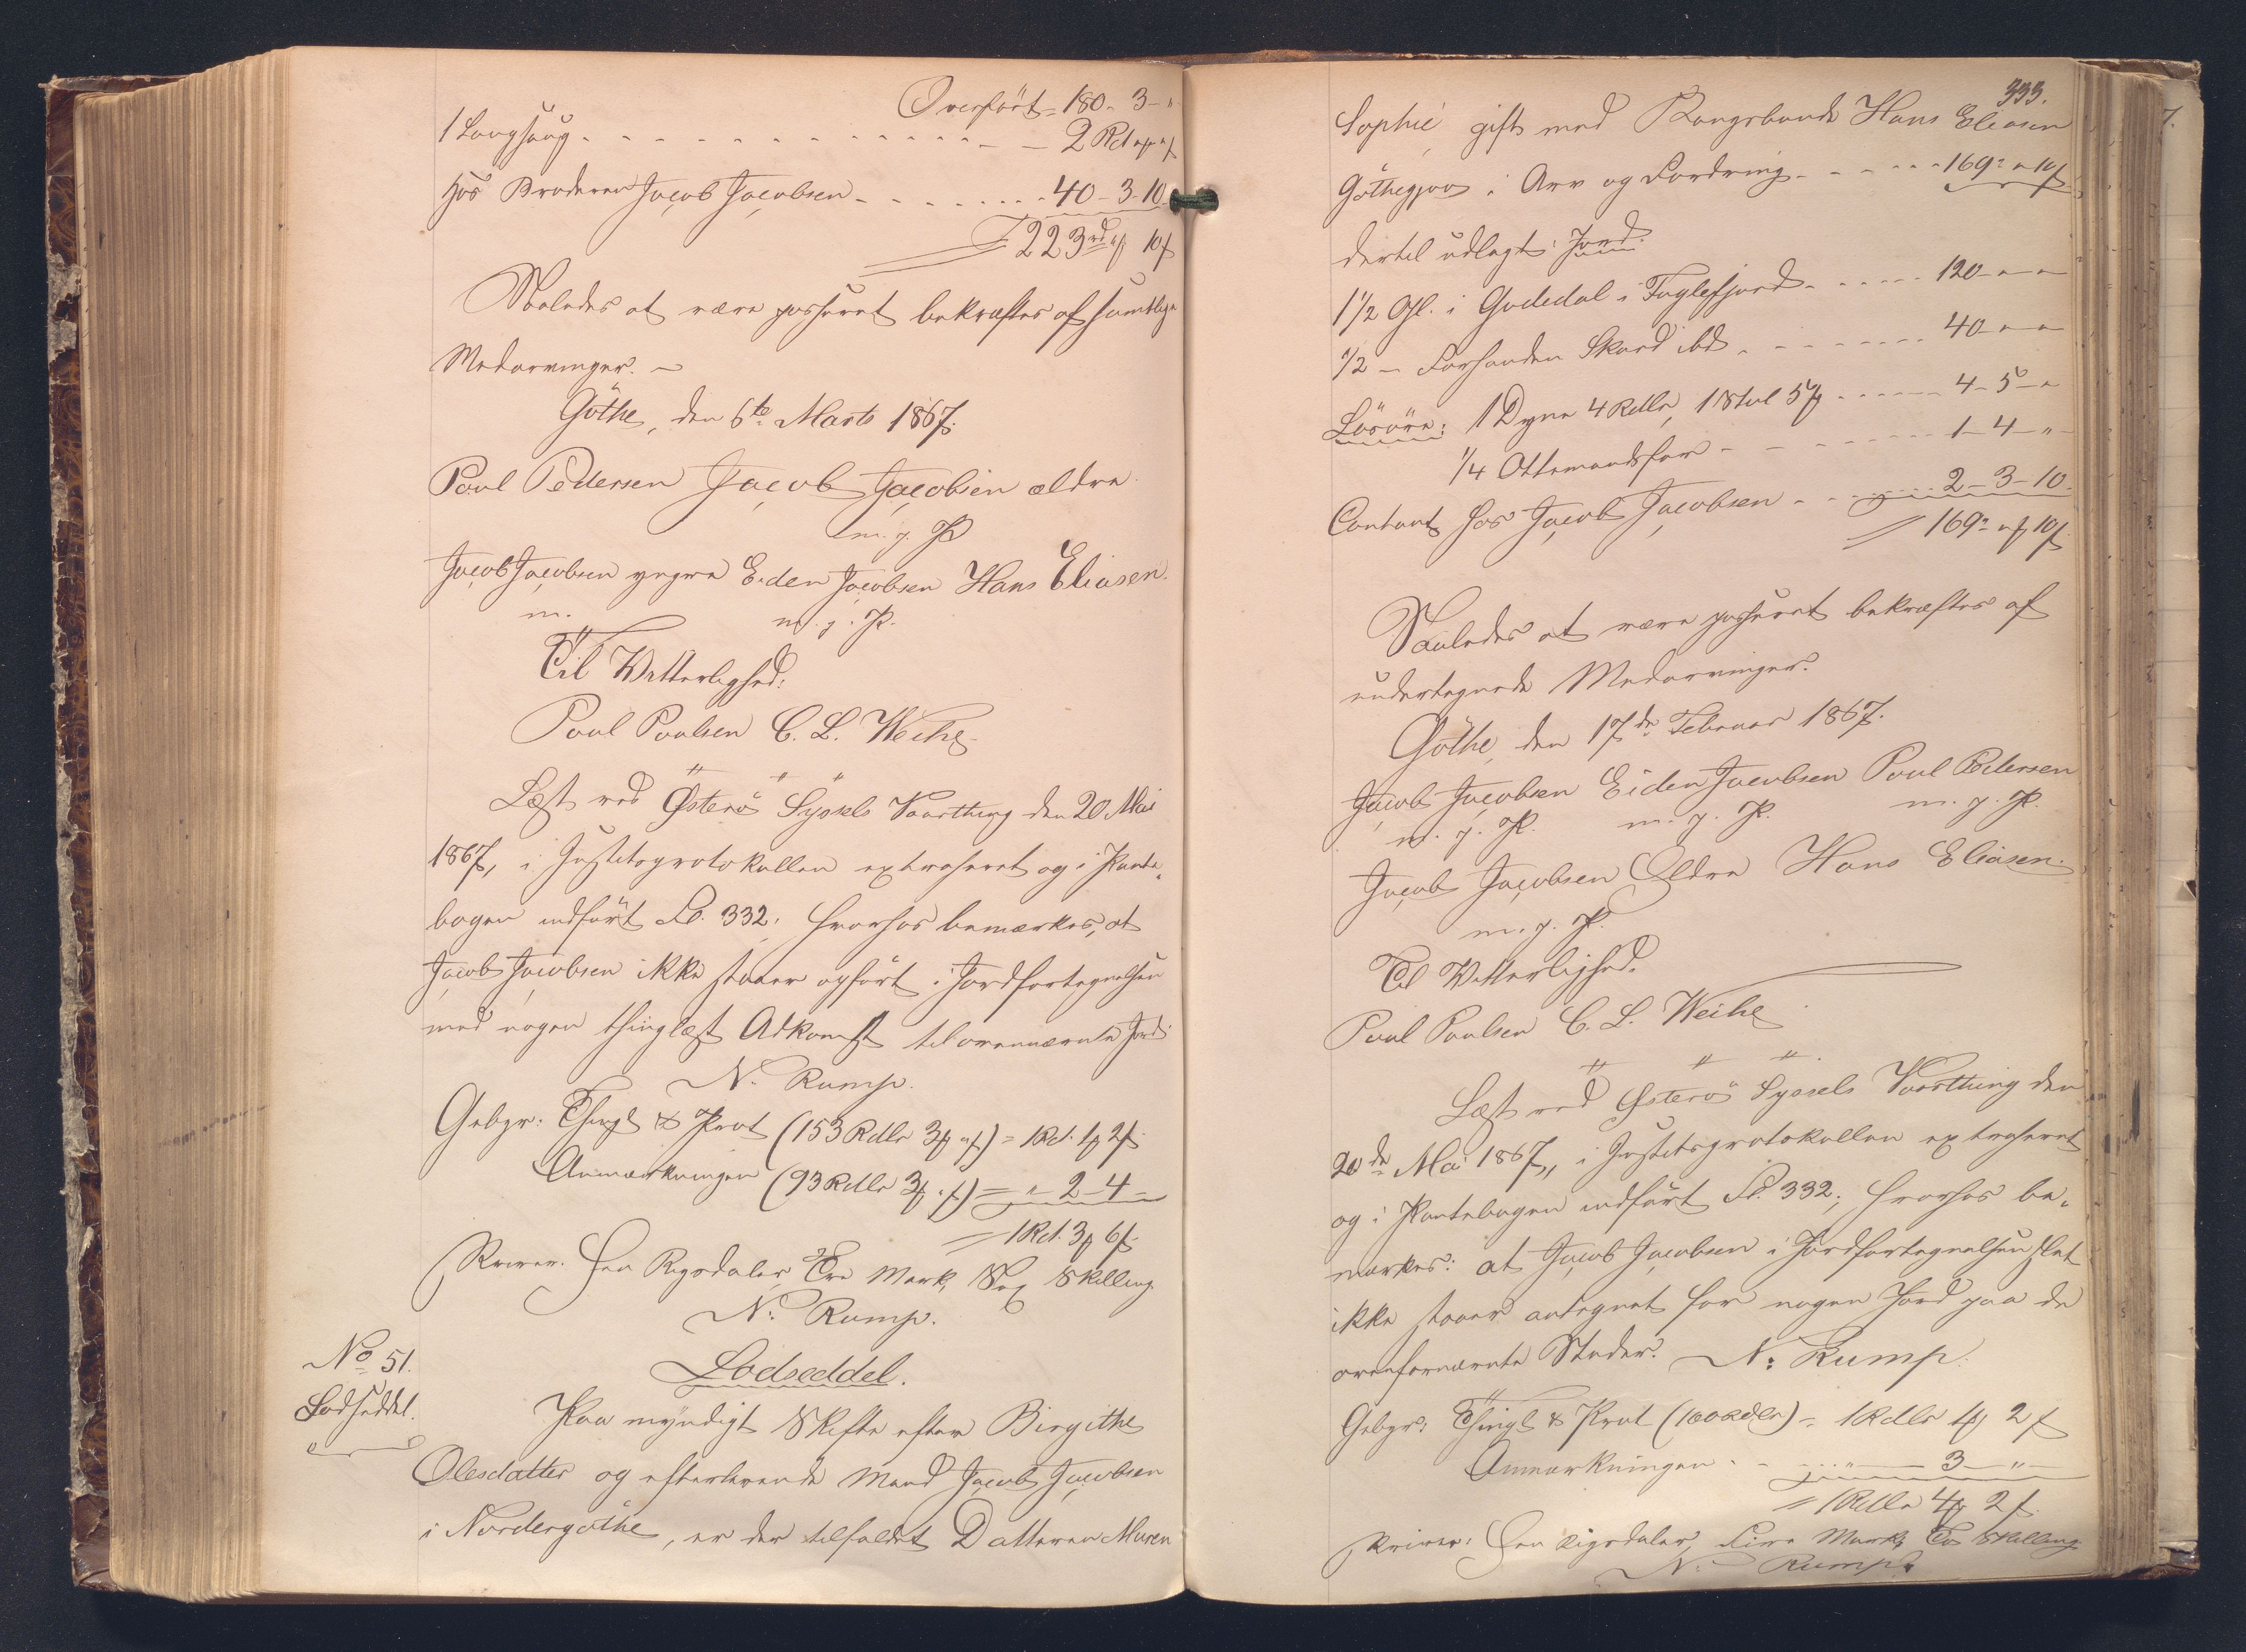 Overført = 180 - 3 - "
1 Langsaug - - - - - - - 2 Rd " " 
hos Broderen Jacob Jacobsen - - - - - - - 40 - 3 - 10
= 223 rd " 10
Saaledes at være passeret bekræftes af samtlige
Medarvinger. -
Göthe, den 6te Marts 1867.
Poul Pedersen Jacob Jacobsen ældre
m. p. P
Jacob Jacobsen yngre Eiden Jacobsen Hans Eliasen.
m. m. p. P.
Til Vitterlighed:
Poul Poulsen C. L. Weihe
Læst ved Österö Syssels Vaarthing den 20 Mai
1867, i Justitsprotokollen extraheret og i Pante-
bogen indført Fo. 332. hvorhos bemærkes, at
Jacob Jacobsen ikke staaer opført i Jordfortegnelsen
med nogen thinglæst Adkomst til ovennævnte Jord
N. Rump.
Gebyr: Thingl & Prot (153 Rdlr 3 " ) = 1 Rd. 1 2
Anmærkningen (93 Rdlr 3 " ) = " - 2 - 4 -
= 1 Rd. 3 6
skriver. Een Rigsdaler, Tre Mark, Sex Skilling.
N. Rump.
No 51.
Lodseddel.
Lodseddel.
Paa myndigt Skifte efter Birgithe
Olesdatter og efterlevende Mand Jacob Jacobsen
i Nordregöthe, er der tilfaldet Datteren Maren
333.
Sophie gift med Kongsbonde Hans Eliasen
Göthegjov i Arv og Fordring - - - - 169 " 10
dertil udlagt: Jord.
1 1/2 Gl. i Gudedal i Fuglefjord - - - - - 120 - " - "
1/2 - Forhanden Skard ibd - - - - - - - 40 - " - "
Lösöre: 1 Dyne 4 Rdlr, 1 Stol 5 - - - - - - 4 - 5 - "
1/4 Ottemandsfar - - - - - - - - - 1 - 4 - " -
Contant hos Jacob Jacobsen - - - - - - 2 - 3 - 10
= 169 " 10
Saaledes at være passeret bekræftes af
undertegnede Medarvinger.
Göthe, den 17de Februar 1867.
Jacob Jacobsen Eiden Jacobsen Poul Pedersen
m. p. P. m. p. P. m. p. P.
Jacob Jacobsen Ældre Hans Eliasen.
m. p. P.
Til Vitterlighed.
Poul Poulsen C. L. Weihe
Læst ved Österö Syssels Vaarthing den
20de Mai 1867, i Justitsprotokollen extraheret
og i Pantebogen indført Fo. 332; hvorhos be-
mærkes: at Jacob Jacobsen i Jordfortegnelsen slet
ikke staaer antegnet for nogen Jord paa de
ovenfornævnte Steder. N. Rump.
Gebyr: Thingl & Prot (160 Rdlr) = 1 Rdlr 1 2
Anmærkningen - - - " - 3 - " -
= 1 Rdlr 4 2
skriver: Een Rigsdaler, Fire Mark, To Skilling
N. Rump.